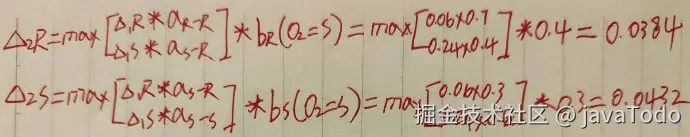 Δ₂R=max[Δ₁R*aR-R Δ₁S*aS-R]*bR(O₂=S)=max[0.06×0.7 0.24×0.4]*0.4=0.0384
Δ₂S=max[Δ₁R*aS-R Δ₁S*aS-S]*bS(O₂=S)=max[0.06×0.3]*0.3=0.0432
掘金技术社区 @ javaTodo